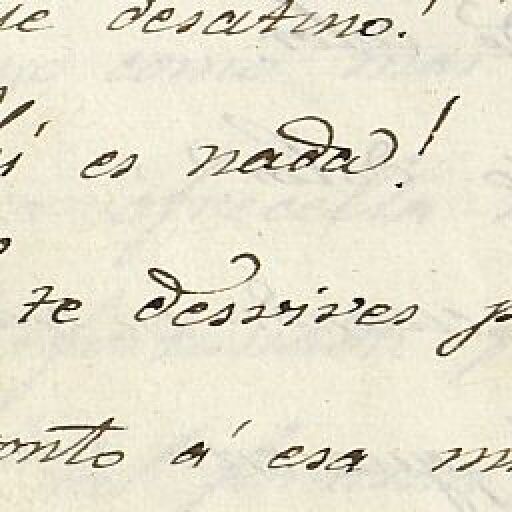 ue desatino!
es nada!
te desvives p
onto á esa m